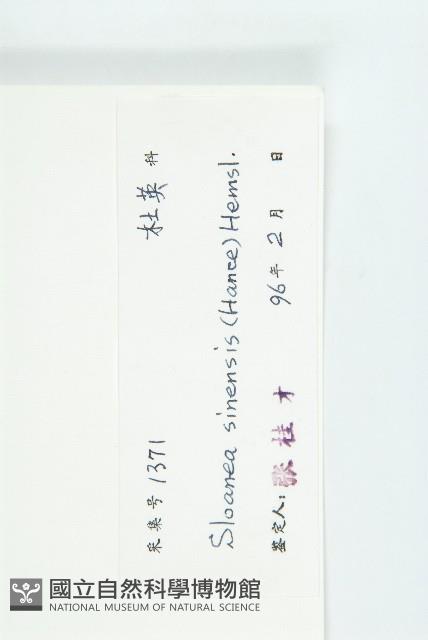 采集号 1371 杜英 科
Sloanea sinensis (Hance) Hemsl.
鉴定人: 张桂才 96 年 2 月 日
國立自然科學博物館
NATIONAL MUSEUM OF NATURAL SCIENCE